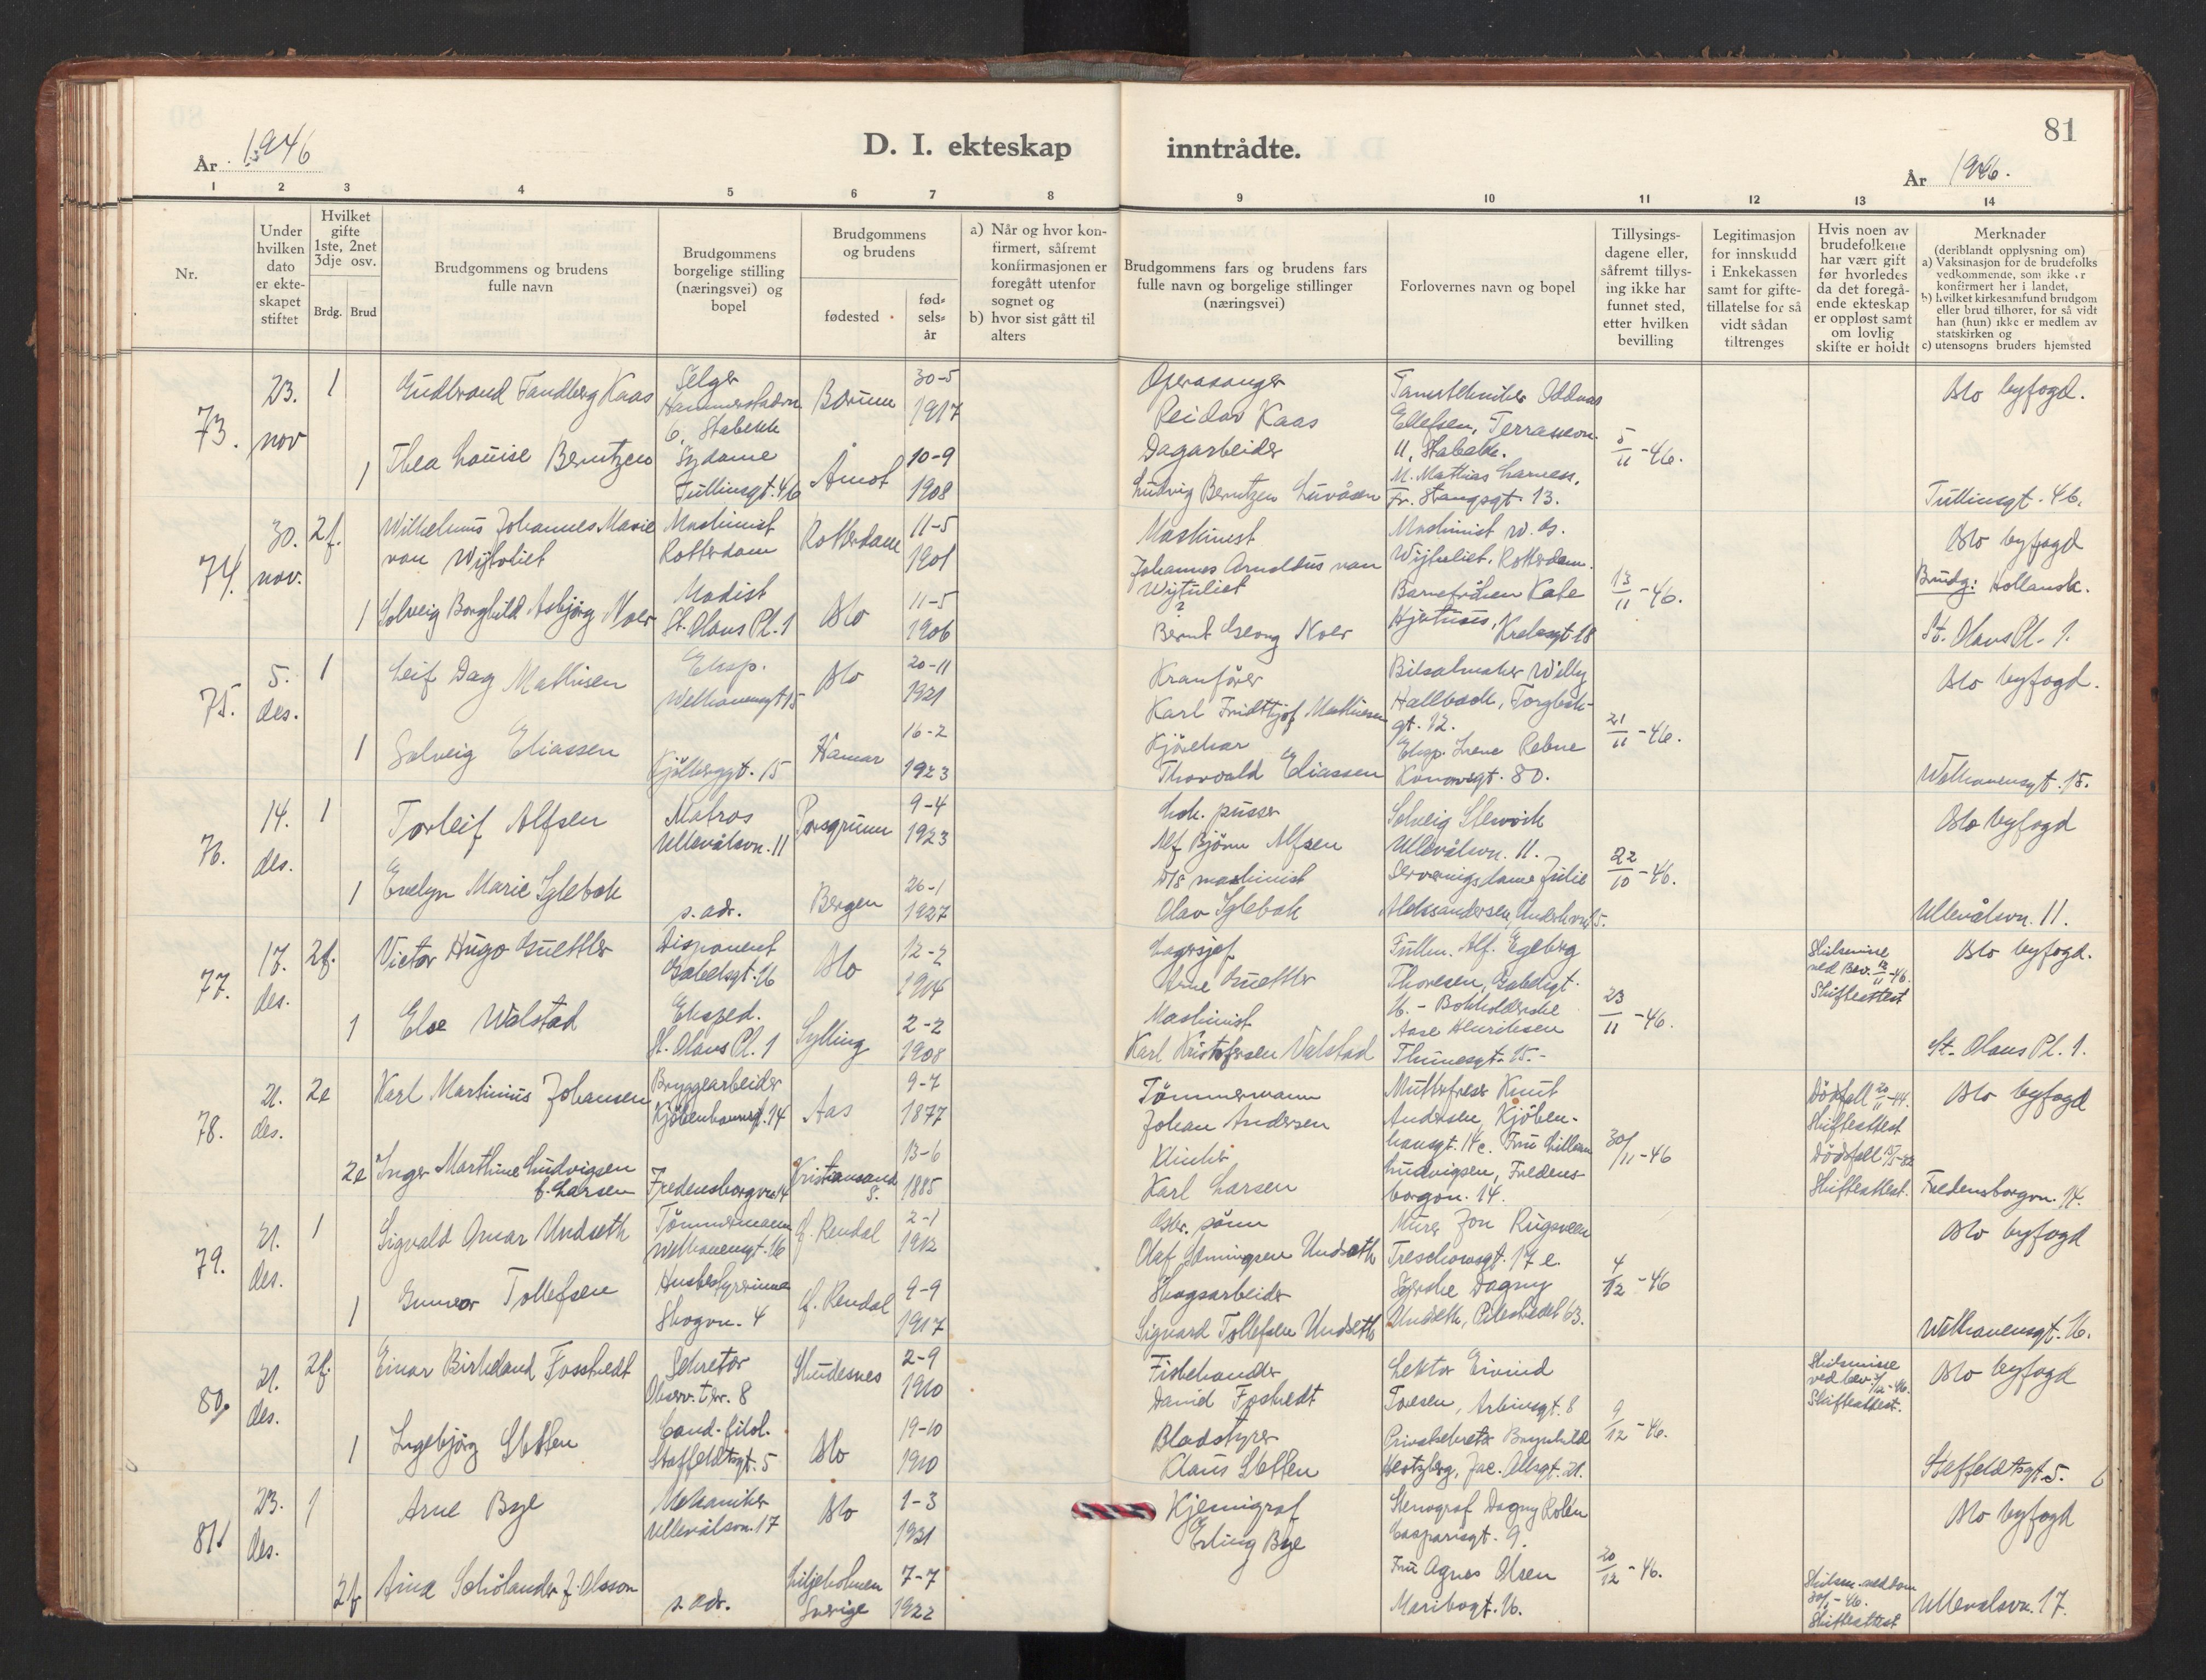 81
År 1946
D. I. ekteskap inntrådte.
År 1946.
1 2 3 4 5 6 7 8 9 10 11 12 13 14
Nr.
Under hvilken dato er ekteskapet stiftet
Hvilket gifte 1ste, 2net 3dje osv.
Brdg. Brud
Brudgommens og brudens fulle navn
Brudgommens borgelige stilling (næringsvei) og bopel
Brudgommens og brudens
fødested
fødselsår
a) Når og hvor konfirmert, såfremt konfirmasjonen er foregått utenfor sognet og
b) hvor sist gått til alters
Brudgommens fars og brudens fars fulle navn og borgelige stillinger (næringsvei)
Forlovernes navn og bopel
Tillysingsdagene eller, såfremt tillysing ikke har funnet sted, etter hvilken bevilling
Legitimasjon for innskudd i Enkekassen samt for giftetillatelse for så vidt sådan tiltrenges
Hvis noen av brudefolkene har vært gift før hvorledes da det foregående ekteskap er oppløst samt om lovlig skifte er holdt
Merknader
(deriblandt opplysning om)
a) Vaksinasjon for de brudefolks vedkommende, som ikke er konfirmert her i landet,
b) hvilket kirkesamfund brudgom eller brud tilhører, for så vidt han (hun) ikke er medlem av statskirken og
c) utensogns bruders hjemsted
73. 23. nov 1 Gudbrand Tandberg Kaas Selger 6, Stabekk Bærum 30-5 1917 Operasanger Reidar Kaas Ellefsen, Terrassevn. 11, Stabekk. 5/11-46. Oslo byfogd.
1 Thea Louise Berntzen Sydame Tullinsgt. 46 Åmot 10-9 1908 Dagarbeider Ludvig Berntzen M. Mathias Fr. Stangsgt. 13. Tullinsgt. 46.
74. 30. nov. 2f. Wilhelmus Johannes Marie van Wijtvliet Maskinist Rotterdam Rotterdam 11-5 1901 Maskinist Johannes Arnoldus van Wijtvliet Maskinist Wijtvliet. Rotterdam. 13/11-46. Oslo byfogd Brudg: Hollansk.
1 Solveig Borghild Asbjørg Noer Modist St. Olavs Pl. 1 Oslo 11-5 1906 ? Bernt Georg Noer St. Olavs Pl. 1.
75. 5. des. 1 Leif Dag Mathisen Eksp. Welhavensgt 15 Oslo 20-11 1921 Kranfører Karl Fridtjof Mathisen Willy Hallbäck, gt. 12. 21/11-46. Oslo byfogd.
1 Solveig Eliassen Kjølberggt. 15 Hamar 16-2 1923 Kjørekar Thorvald Eliassen Eksp. Irene Kanowsgt. 80. Welhavensgt. 15.
76. 14. des. 1 Torleif Alfsen Matros Ullevålsvn. 11 Porsgrunn 9-4 1923 Lok. pusser Alf Bjørn Alfsen Solveig Ullevålsvn. 11. 22/10-46. Oslo byfogd
1 Evelyn Marie Iglebæk s. adr. Bergen 26-1 1927 D/S maskinist Olav Iglebæk Serveringsdame Julie Aleksandersen, Ullevålsvn. 11.
77. 17. des. 2f. Victor Hugo Guettler Disponent Gabelsgt. 16 Oslo 12-2 1904 Lagersjef Arne Guettler Fullm. Alf. Egeberg Thoresen, Gabelsgt. 16. 23/11-46. Skilsmisse ved Bev. 12/11-46. Skifteattest Oslo byfogd.
1 Else Walstad Eksped. St. Olavs Pl. 1 Sylling 2-2 1908 Maskinist Karl Kristofersen Valstad Bokholderske Aase Henriksen Thunesgt. 15. St. Olavs Pl. 1.
78. 21. des. 2e Karl Martinius Johansen Bryggearbeider Kjøbenhavnsgt. 14 Aas 9-7 1877 Tømmermann Johan Andersen Knut Andersen, Kjøbenhavnsgt. 14c. 30/11-46 Dødsfall 20/11-44. Skifteattest Oslo byfogd
2e Inger Marthine Ludvigsen f. Larsen Fredensborgvn. 14 Kristiansand S. 13-6 1885 Karl Larsen Fru Lilleam Ludvigsen, Fredensborgvn. 14. Dødsfall Skifteattest. Fredensborgvn. 14.
79. 21. des. 1 Sigvald Omar Undseth Tømmermann Welhavensgt. 16 Ø. Rendal 2-1 1912 Olaf Undseth Murer Jon Rugsveen Treschowsgt. 17 e. 4/12-46 Oslo byfogd
1 Gunvor Tollefsen Husbestyrerinne Skogvn. 4 Ø. Rendal 9-9 1917 Skogsarbeider Sigvard Tollefsen Undseth Syerske Dagny Undseth, Pilestredet 63. Welhavensgt. 16.
80. 21. des. 2f. Einar Birkeland Fosstvedt Sekretær Observ. terr. 8 Skudesnes 2-9 1910 Fiskehandler David Fostvedt Lektor Eivind Toesen, Arbinsgt. 8 9/12-46. Skilsmisse ved bev. Skifteattest. Oslo byfogd
1 Ingebjørg Sletten Cand. filol. Staffeldtsgt. 5 Oslo 19-10 1910 Bladstyrer Klaus Sletten Privatsekretær Brynhild Hertzberg, Jac. Allsgt. 21. Staffeldtsgt. 5.
81. 23. des. 1 Arne Bye Mekaniker Ullevålsvn. 17 Oslo 1-3 1921 Kjemigraf Erling Bye Stenograf Dagny Rolén Casparisgt. 9. 20/12-46. Oslo byfogd
2f Aina Schölander f. Olsson s. adr. Liljeholmen Sverige 7-7 1922 Fru Agnes Olsen Maribogt. 16. Skifteattest Ullevålsvn. 17.